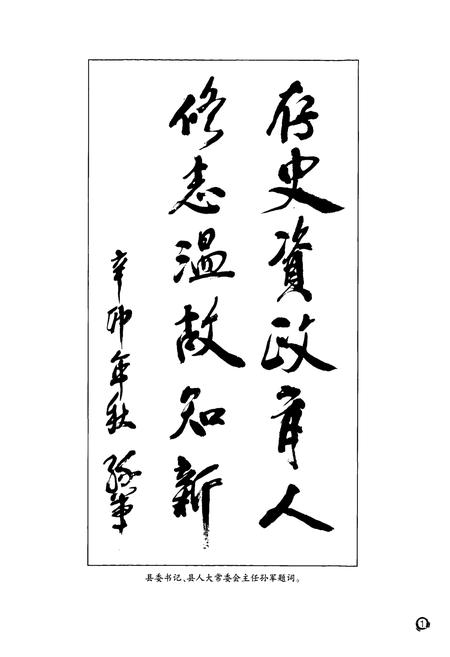 存史資政育人
修志温故知新
辛卯年秋 孙军
县委书记、县人大常委会主任孙军题词。
1